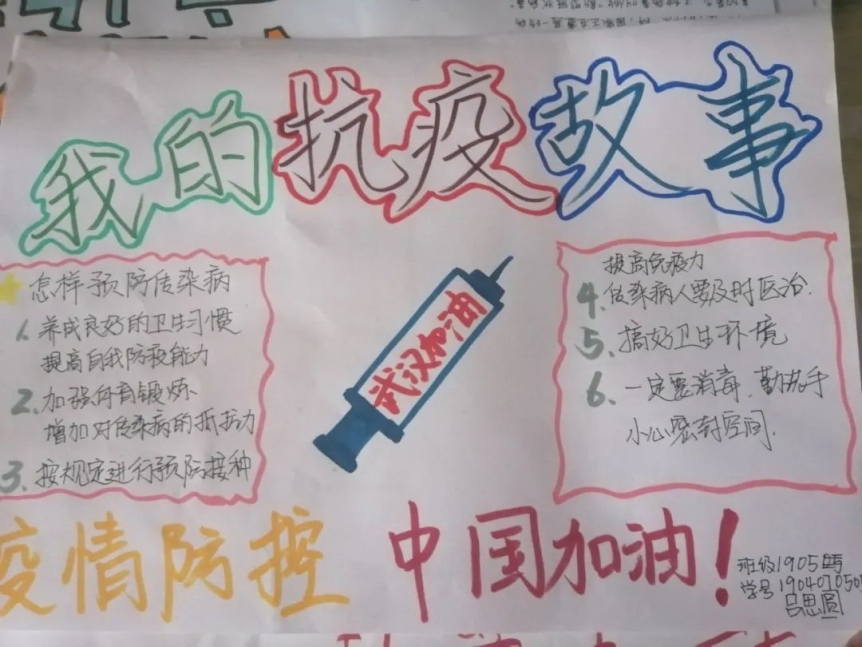 我的抗疫故事
怎样预防传染病
1、养成良好的卫生习惯
提高自我防疫能力
2、加强体育锻炼
增加对传染病的抵抗力
3、按规定进行预防接种
武汉加油
提高免疫力
4、传染病人要及时医治.
5、搞好卫生环境
6、一定要消毒、勤洗手
小心密封空间.
疫情防控 中国加油!
班级1905
学号190407050
吕思圆